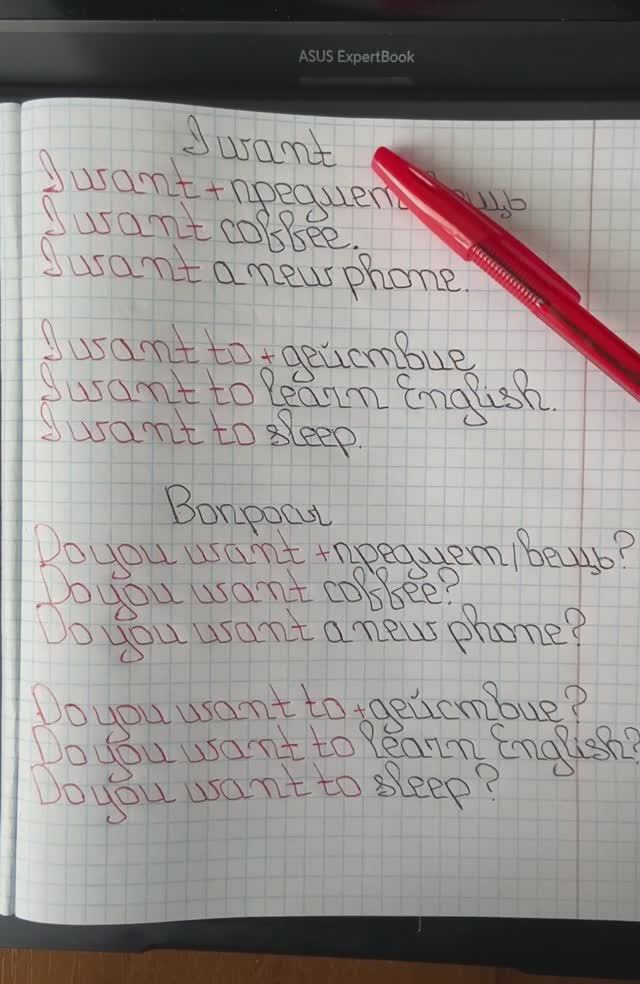 ASUS ExpertBook
I want
I want + предмет вещь
I want coffee.
I want a new phone.
I want to + действие
I want to learn English.
I want to sleep.
Вопросы
Do you want + предмет/вещь?
Do you want coffee?
Do you want a new phone?
Do you want to + действие?
Do you want to learn English?
Do you want to sleep?